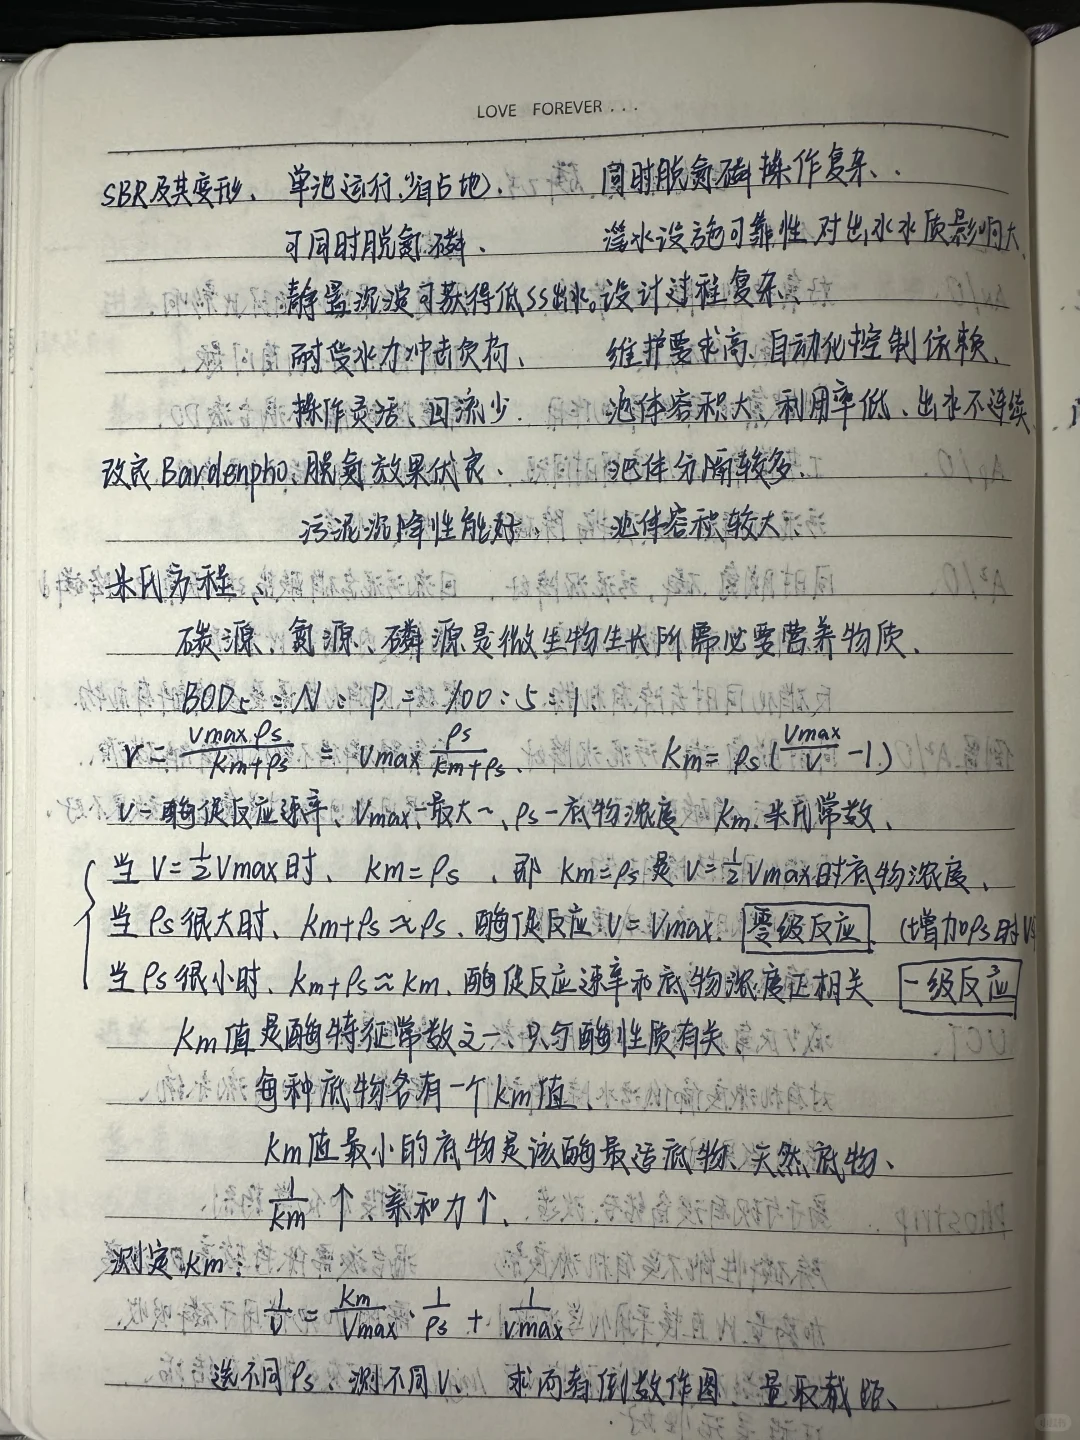 LOVE FOREVER...
SBR及其变形、 单池运行,省占地、 同时脱氮磷操作复杂、.
可同时脱氮磷、 滗水设施可靠性对出水水质影响大、
静置沉淀可获得低SS出水。设计过程复杂、
耐受水力冲击负荷、 维护要求高、自动化控制依赖、
操作灵活、回流少. 池体容积大、利用率低、出水不连续
改良Bardenpho:脱氮效果优良、 池体分隔较多、
污泥沉降性能好、 池体容积较大
米氏方程、
碳源、氮源、磷源是微生物生长所需必要营养物质、
BOD5:N:P=100:5:1
V = Vmax ρs / (Km+ρs) = Vmax ρs / (Km+ρs)、 Km = ρs (Vmax/V - 1)
V=酶促反应速率、Vmax、最大~、ρs-底物浓度 Km、米氏常数、
当V=½Vmax时、Km=ρs、即Km=ρs是V=½Vmax时底物浓度、
当ρs很大时、Km+ρs≈ρs、酶促反应V=Vmax、零级反应、(增加ρs时V
当ρs很小时、Km+ρs≈Km、酶促反应速率和底物浓度正相关 一级反应
Km值是酶特征常数之一、只与酶性质有关
每种底物各有一个Km值、
Km值最小的底物是该酶最适底物、天然底物、
1/Km ↑ 亲和力↑、
测定Km:
1/V = Km/Vmax · 1/ρs + 1/Vmax
选不同ρs、测不同V、 求两者倒数作图、量取截距、